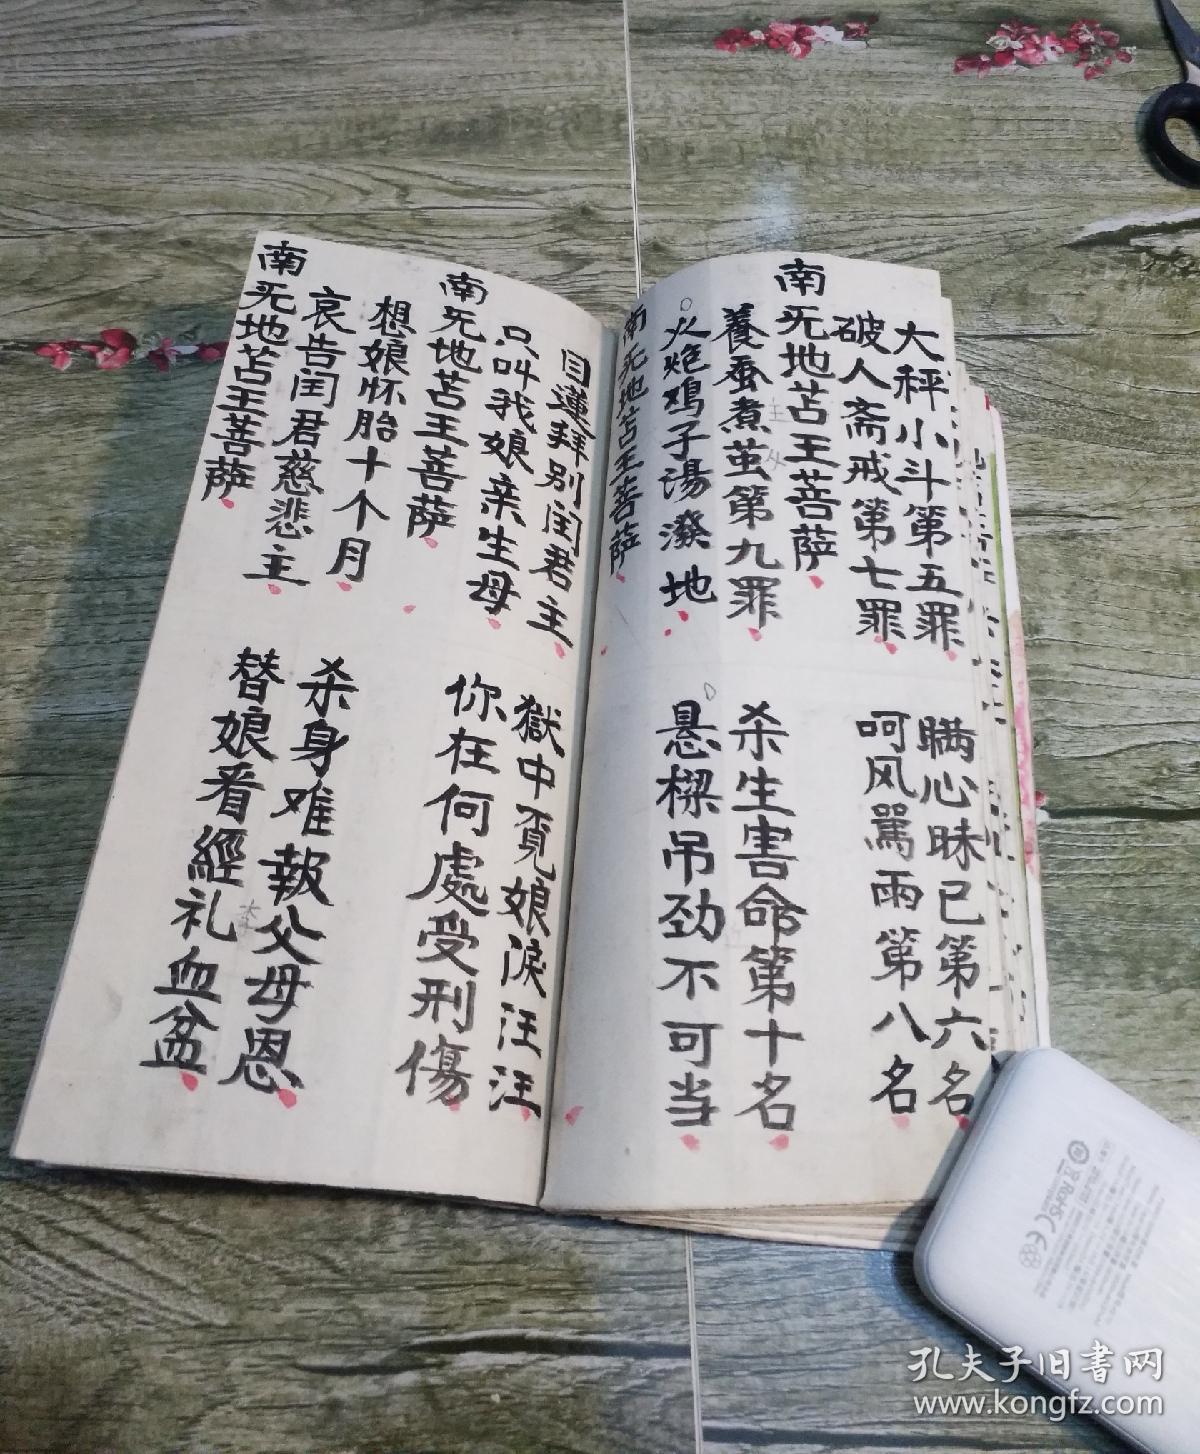 大秤小斗第五罪 瞒心昧已第六名
破人斋戒第七罪 呵风駡雨第八名
南旡地苫王菩萨
養蚕煮茧第九罪 杀生害命第十名
火炮鸡子湯潑地 悬樑吊劲不可当
南旡地苫王菩萨
目蓮拜别闰君主 獄中覓娘淚汪汪
只叫我娘亲生母 你在何處受刑傷
南旡地苫王菩萨
想娘怀胎十个月 杀身难報父母恩
哀告闰君慈悲主 替娘看經礼血盆
南旡地苫王菩萨
孔夫子旧書网
www.kongfz.com